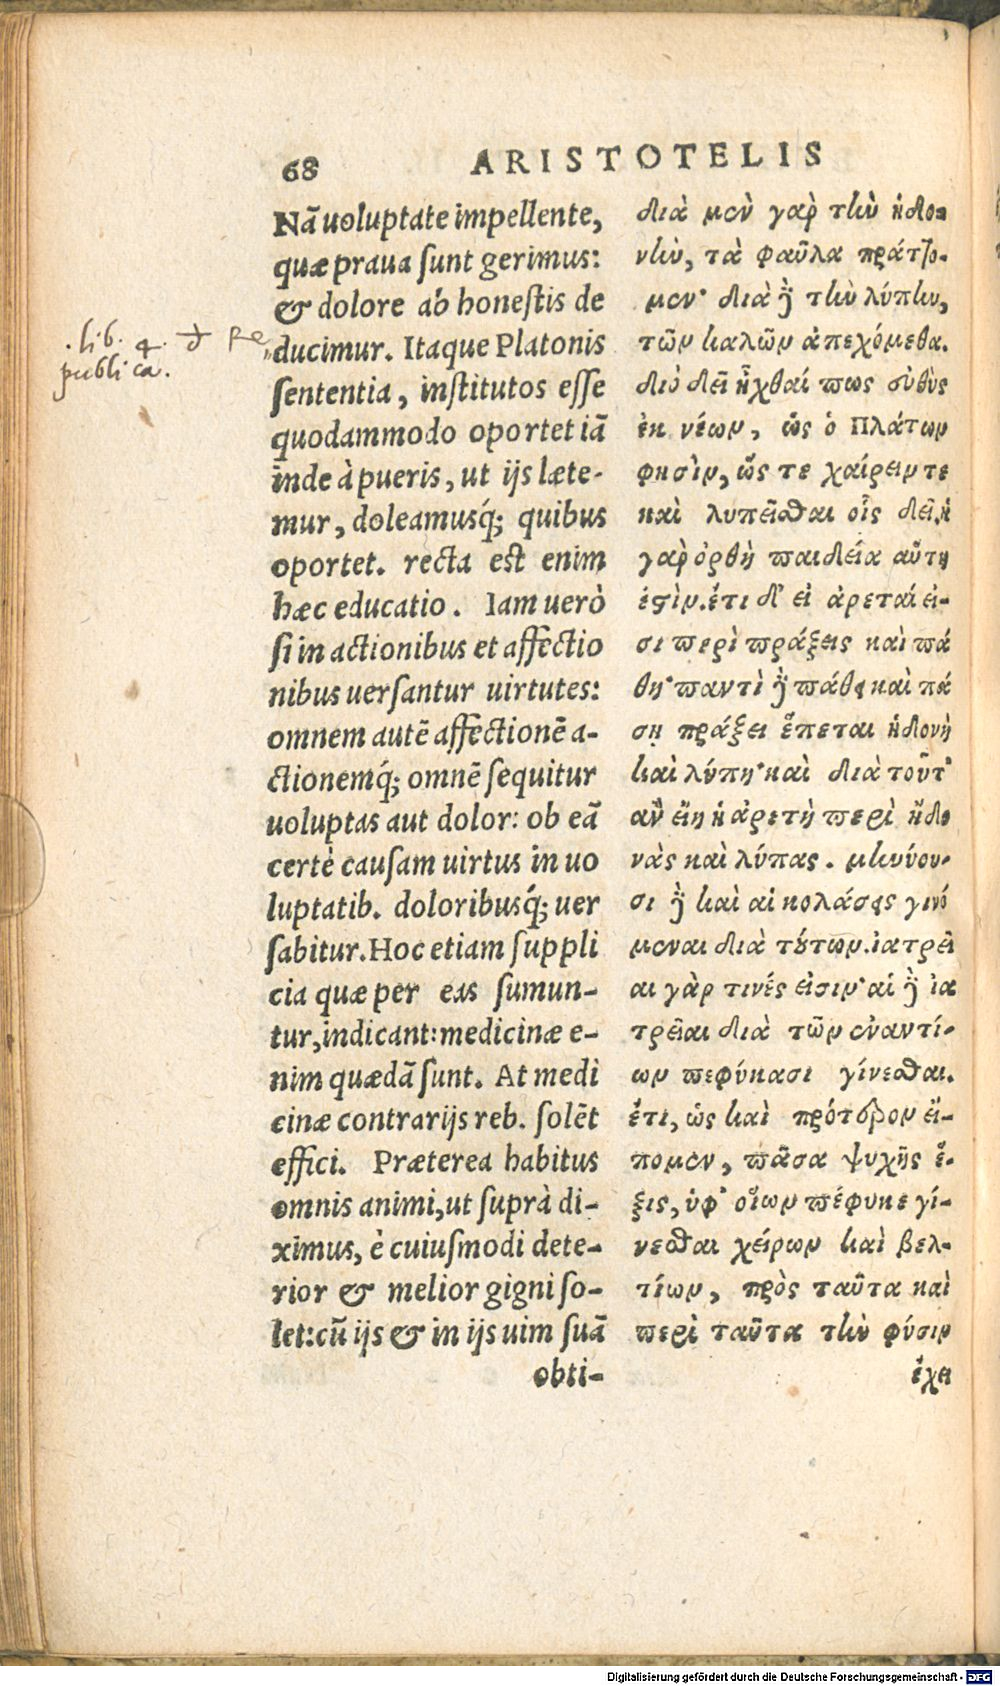 68 ARISTOTELIS
Nã uoluptate impellente,
quæ praua sunt gerimus:
& dolore ab honestis de
ducimur. Itaque Platonis
sententia, institutos esse
quodammodo oportet iã
inde à pueris, ut ijs læte-
mur, doleamusq́; quibus
oportet. recta est enim
hæc educatio. Iam uerò
si in actionibus et affectio
nibus uersantur uirtutes:
omnem autẽ affectionẽ a-
ctionemq́; omnẽ sequitur
uoluptas aut dolor: ob eã
certè causam uirtus in uo
luptatib. doloribusq́; uer
sabitur. Hoc etiam suppli
cia quæ per eas sumun-
tur, indicant: medicinæ e-
nim quædã sunt. At medi
cinæ contrarijs reb. solẽt
effici. Præterea habitus
omnis animi, ut suprà di-
ximus, è cuiusmodi dete-
rior & melior gigni so-
let: cũ ijs & in ijs uim suã
obti-
διὰ μὲν γὰρ τὴν ἡδο-
νὴν, τὰ φαῦλα πράττο-
μεν· διὰ δὲ τὴν λύπην,
τῶν καλῶν ἀπεχόμεθα.
διὸ δεῖ ἦχθαί πως εὐθὺς
ἐκ νέων, ὡς ὁ Πλάτων
φησὶν, ὥς τε χαίρειν τε
καὶ λυπεῖσθαι οἷς δεῖ. ἡ
γὰρ ὀρθὴ παιδεία αὕτη
ἐστὶν. ἔτι δ' εἰ ἀρεταί εἰ-
σι περὶ πράξεις καὶ πά
θη· παντὶ δὲ πάθει καὶ πά
σῃ πράξει ἕπεται ἡδονὴ
καὶ λύπη· καὶ διὰ τοῦτ'
ἂν εἴη ἡ ἀρετὴ περὶ ἡδο
νὰς καὶ λύπας. μηνύου-
σι δὲ καὶ αἱ κολάσεις γινό
μεναι διὰ τούτων. ἰατρεῖ
αι γὰρ τινές εἰσιν· αἱ δὲ ἰα
τρεῖαι διὰ τῶν ἐναντί-
ων πεφύκασι γίνεσθαι.
ἔτι, ὡς καὶ πρότερον εἴ-
πομεν, πᾶσα ψυχῆς ἕ-
ξις, ὑφ' οἵων πέφυκε γί-
νεσθαι χείρων καὶ βελ-
τίων, πρὸς ταῦτα καὶ
περὶ ταῦτα τὴν φύσιν
ἔχει
.lib. 4. d Re
publica.
Digitalisierung gefördert durch die Deutsche Forschungsgemeinschaft - DFG